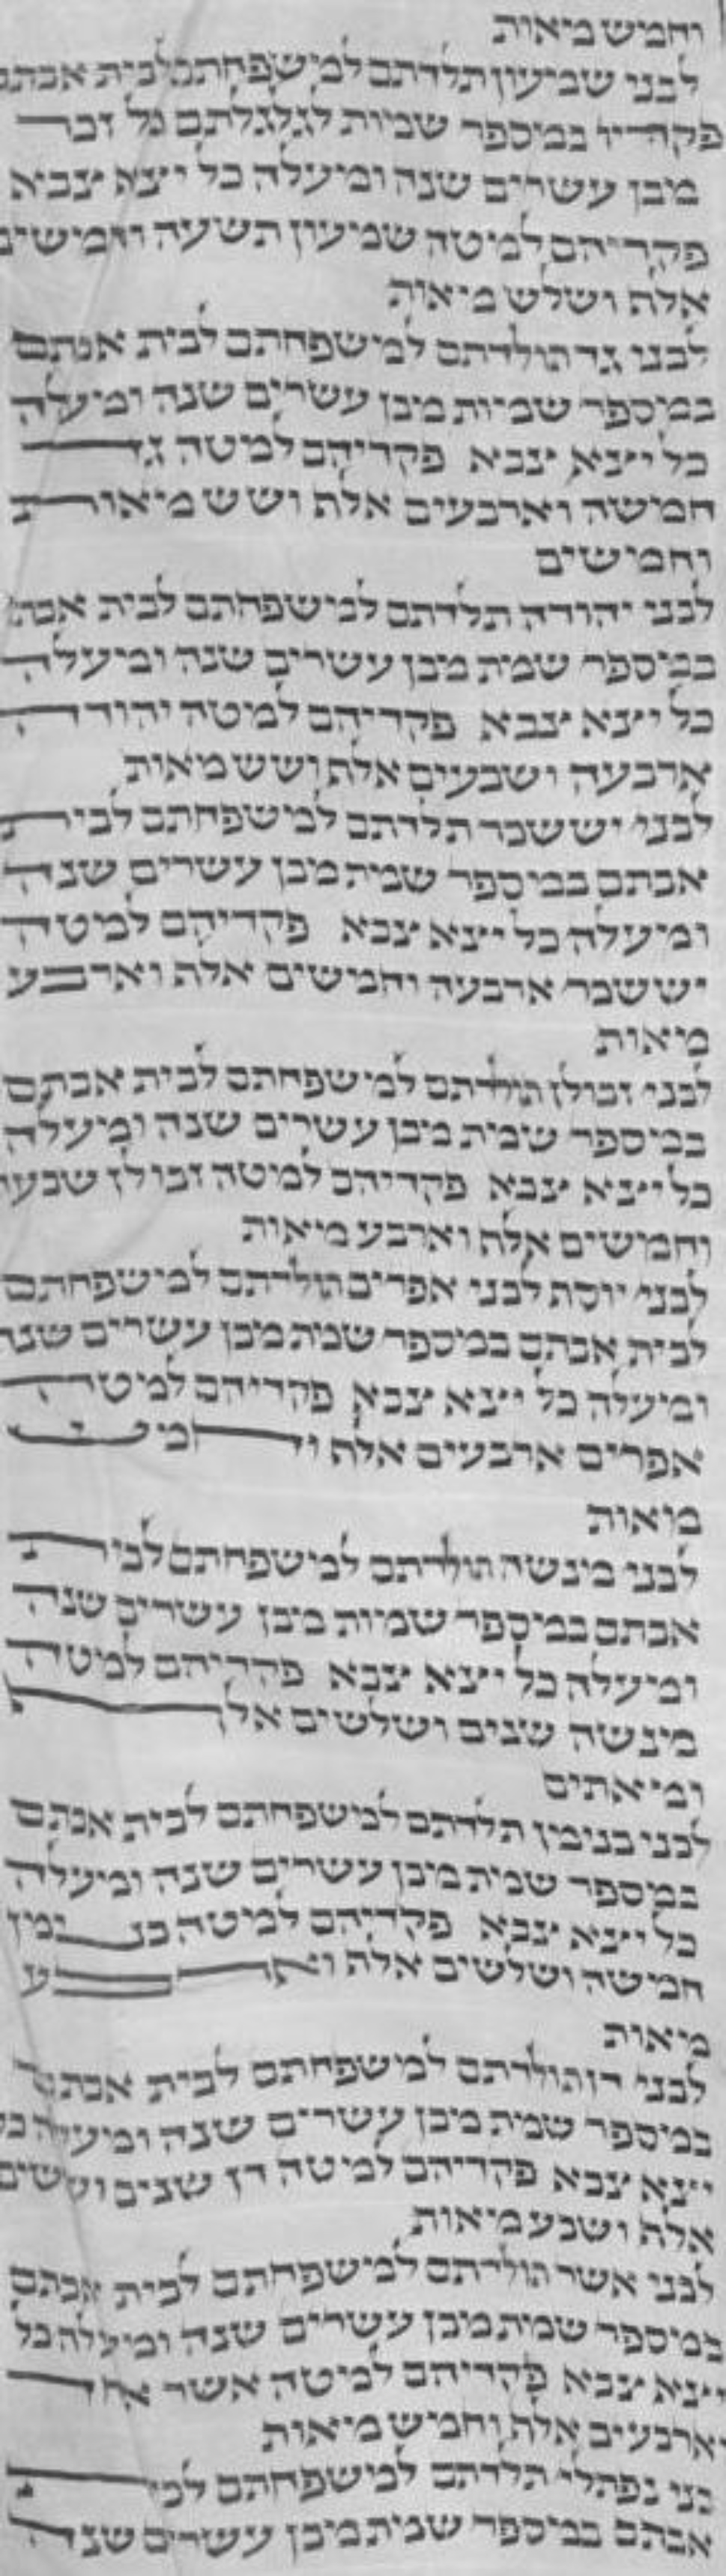 וחמש מאות
לבני שמעון תולדתם למשפחתם לבית אבתם
פקדיו במספר שמות לגלגלתם כל זכר
מבן עשרים שנה ומעלה כל יצא צבא
פקדיהם למטה שמעון תשעה וחמשים
אלף ושלש מאות
לבני גד תולדתם למשפחתם לבית אבתם
במספר שמות מבן עשרים שנה ומעלה
כל יצא צבא פקדיהם למטה גד
חמשה וארבעים אלף ושש מאות
וחמשים
לבני יהודה תולדתם למשפחתם לבית אבתם
במספר שמת מבן עשרים שנה ומעלה
כל יצא צבא פקדיהם למטה יהודה
ארבעה ושבעים אלף ושש מאות
לבני יששכר תולדתם למשפחתם לבית
אבתם במספר שמת מבן עשרים שנה
ומעלה כל יצא צבא פקדיהם למטה
יששכר ארבעה וחמשים אלף וארבע
מאות
לבני זבולן תולדתם למשפחתם לבית אבתם
במספר שמת מבן עשרים שנה ומעלה
כל יצא צבא פקדיהם למטה זבולן שבעה
וחמשים אלף וארבע מאות
לבני יוסף לבני אפרים תולדתם למשפחתם
לבית אבתם במספר שמת מבן עשרים שנה
ומעלה כל יצא צבא פקדיהם למטה
אפרים ארבעים אלף וחמש
מאות
לבני מנשה תולדתם למשפחתם לבית
אבתם במספר שמות מבן עשרים שנה
ומעלה כל יצא צבא פקדיהם למטה
מנשה שנים ושלשים אלף
ומאתים
לבני בנימן תולדתם למשפחתם לבית אבתם
במספר שמת מבן עשרים שנה ומעלה
כל יצא צבא פקדיהם למטה בנימן
חמשה ושלשים אלף וארבע
מאות
לבני דן תולדתם למשפחתם לבית אבתם
במספר שמת מבן עשרים שנה ומעלה כל
יצא צבא פקדיהם למטה דן שנים וששים
אלף ושבע מאות
לבני אשר תולדתם למשפחתם לבית אבתם
במספר שמת מבן עשרים שנה ומעלה כל
יצא צבא פקדיהם למטה אשר אחד
וארבעים אלף וחמש מאות
בני נפתלי תולדתם למשפחתם לבית
אבתם במספר שמת מבן עשרים שנה